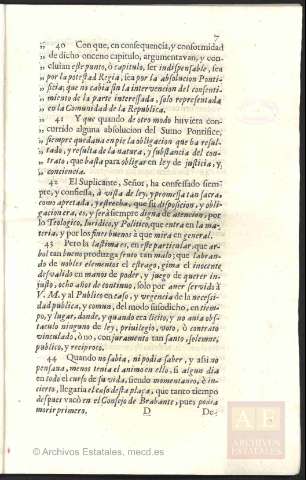 7
,, 40 Con que, en consequencia, y conformidad
,, de dicho onceno capitulo, argumentavan, y con-
,, cluìan este punto, ò capitulo, ser indispensable, sea
,, por la potestad Regia, sea por la absolucion Ponti-
,, ficia; que no cabia sin la intervencion del consenti-
,, miento de la parte interessada, solo representada
,, en la Comunidad de la Republica.
,, 41 Y que quando de otro modo huviera con-
,, corrido alguna absolucion del Sumo Pontifice,
,, siempre quedava en pie la obligacion que ha resul-
,, tado, y resulta de la natura, y substancia del con-
,, trato, que basta para obligar en ley de justicia, y
,, conciencia.
42 El Suplicante, Señor, ha confessado siem-
pre, y confiessa, à vista de ley, y promessa tan sacra,
como apretada, y estrecha, que su disposicion, y obli-
gacion era, es, y serà siempre digna de atencion, por
lo Teologico, Iuridico, y Politico, que entra en la ma-
teria; y por los fines buenos à que mira en general.
43 Pero la lastima es, en este particular, que ar-
bol tan bueno produzga fruto tan malo; que labran-
do de nobles elementos el estrago, gima el inocente
desvalido en manos de poder, y juego de querer in-
justo, ocho años de continuo, solo por aver servido à
V. M. y al Publico en caso, y urgencia de la necessi-
dad publica, y comun, del modo susodicho, en tiem-
po, y lugar, donde, y quando era licito, y no avia obs-
taculo ninguno de ley, privilegio, voto, ò contrato
vinculado, ò no, con juramento tan santo, solemne,
publico, y reciproco.
44 Quando no sabia, ni podia saber, y assi no
pensava, menos tenia el animo en ello, si algun dia
en todo el curso de su vida, siendo momentaneo, è in-
cierto, llegaria el caso de esta plaça, que tanto tiempo
despues vacò en el Consejo de Brabante, pues podia
morir primero. D De-
AE
ARCHIVOS
ESTATALES
© Archivos Estatales, mecd.es